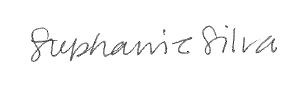 Stephanie Silva